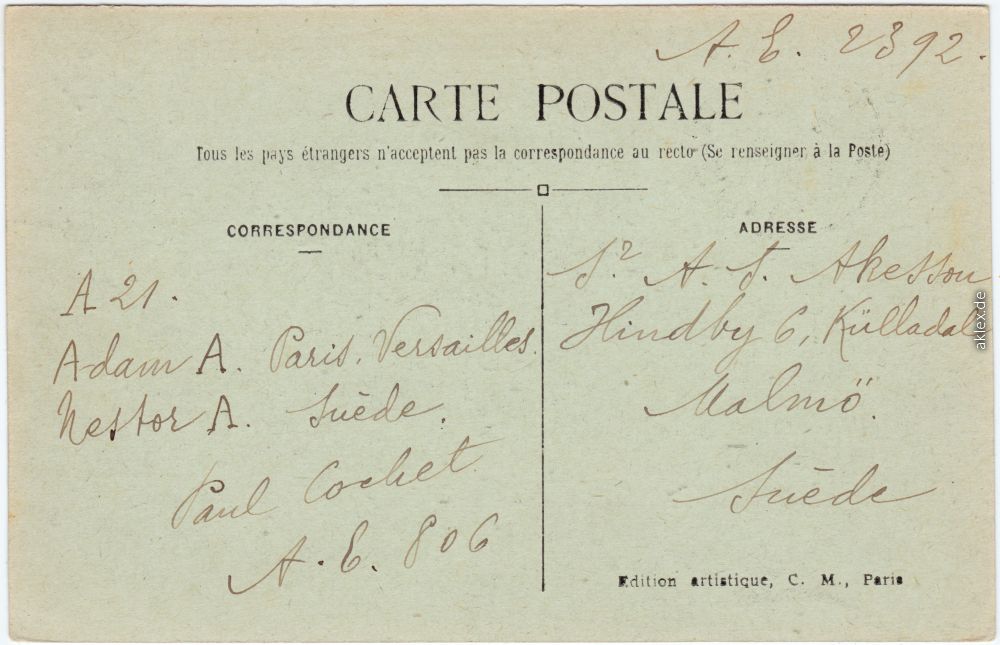 A. E. 2392.
CARTE POSTALE
Tous les pays étrangers n'acceptent pas la correspondance au recto (Se renseigner à la Poste)
CORRESPONDANCE
A 21.
Adam A. Paris. Versailles.
Nestor A. Suède.
Paul Cochet
A. E. 806
ADRESSE
A. Akesson
Hindby 6, Külladal
Malmö.
Suède
Edition artistique, C. M., Paris
aklex.de